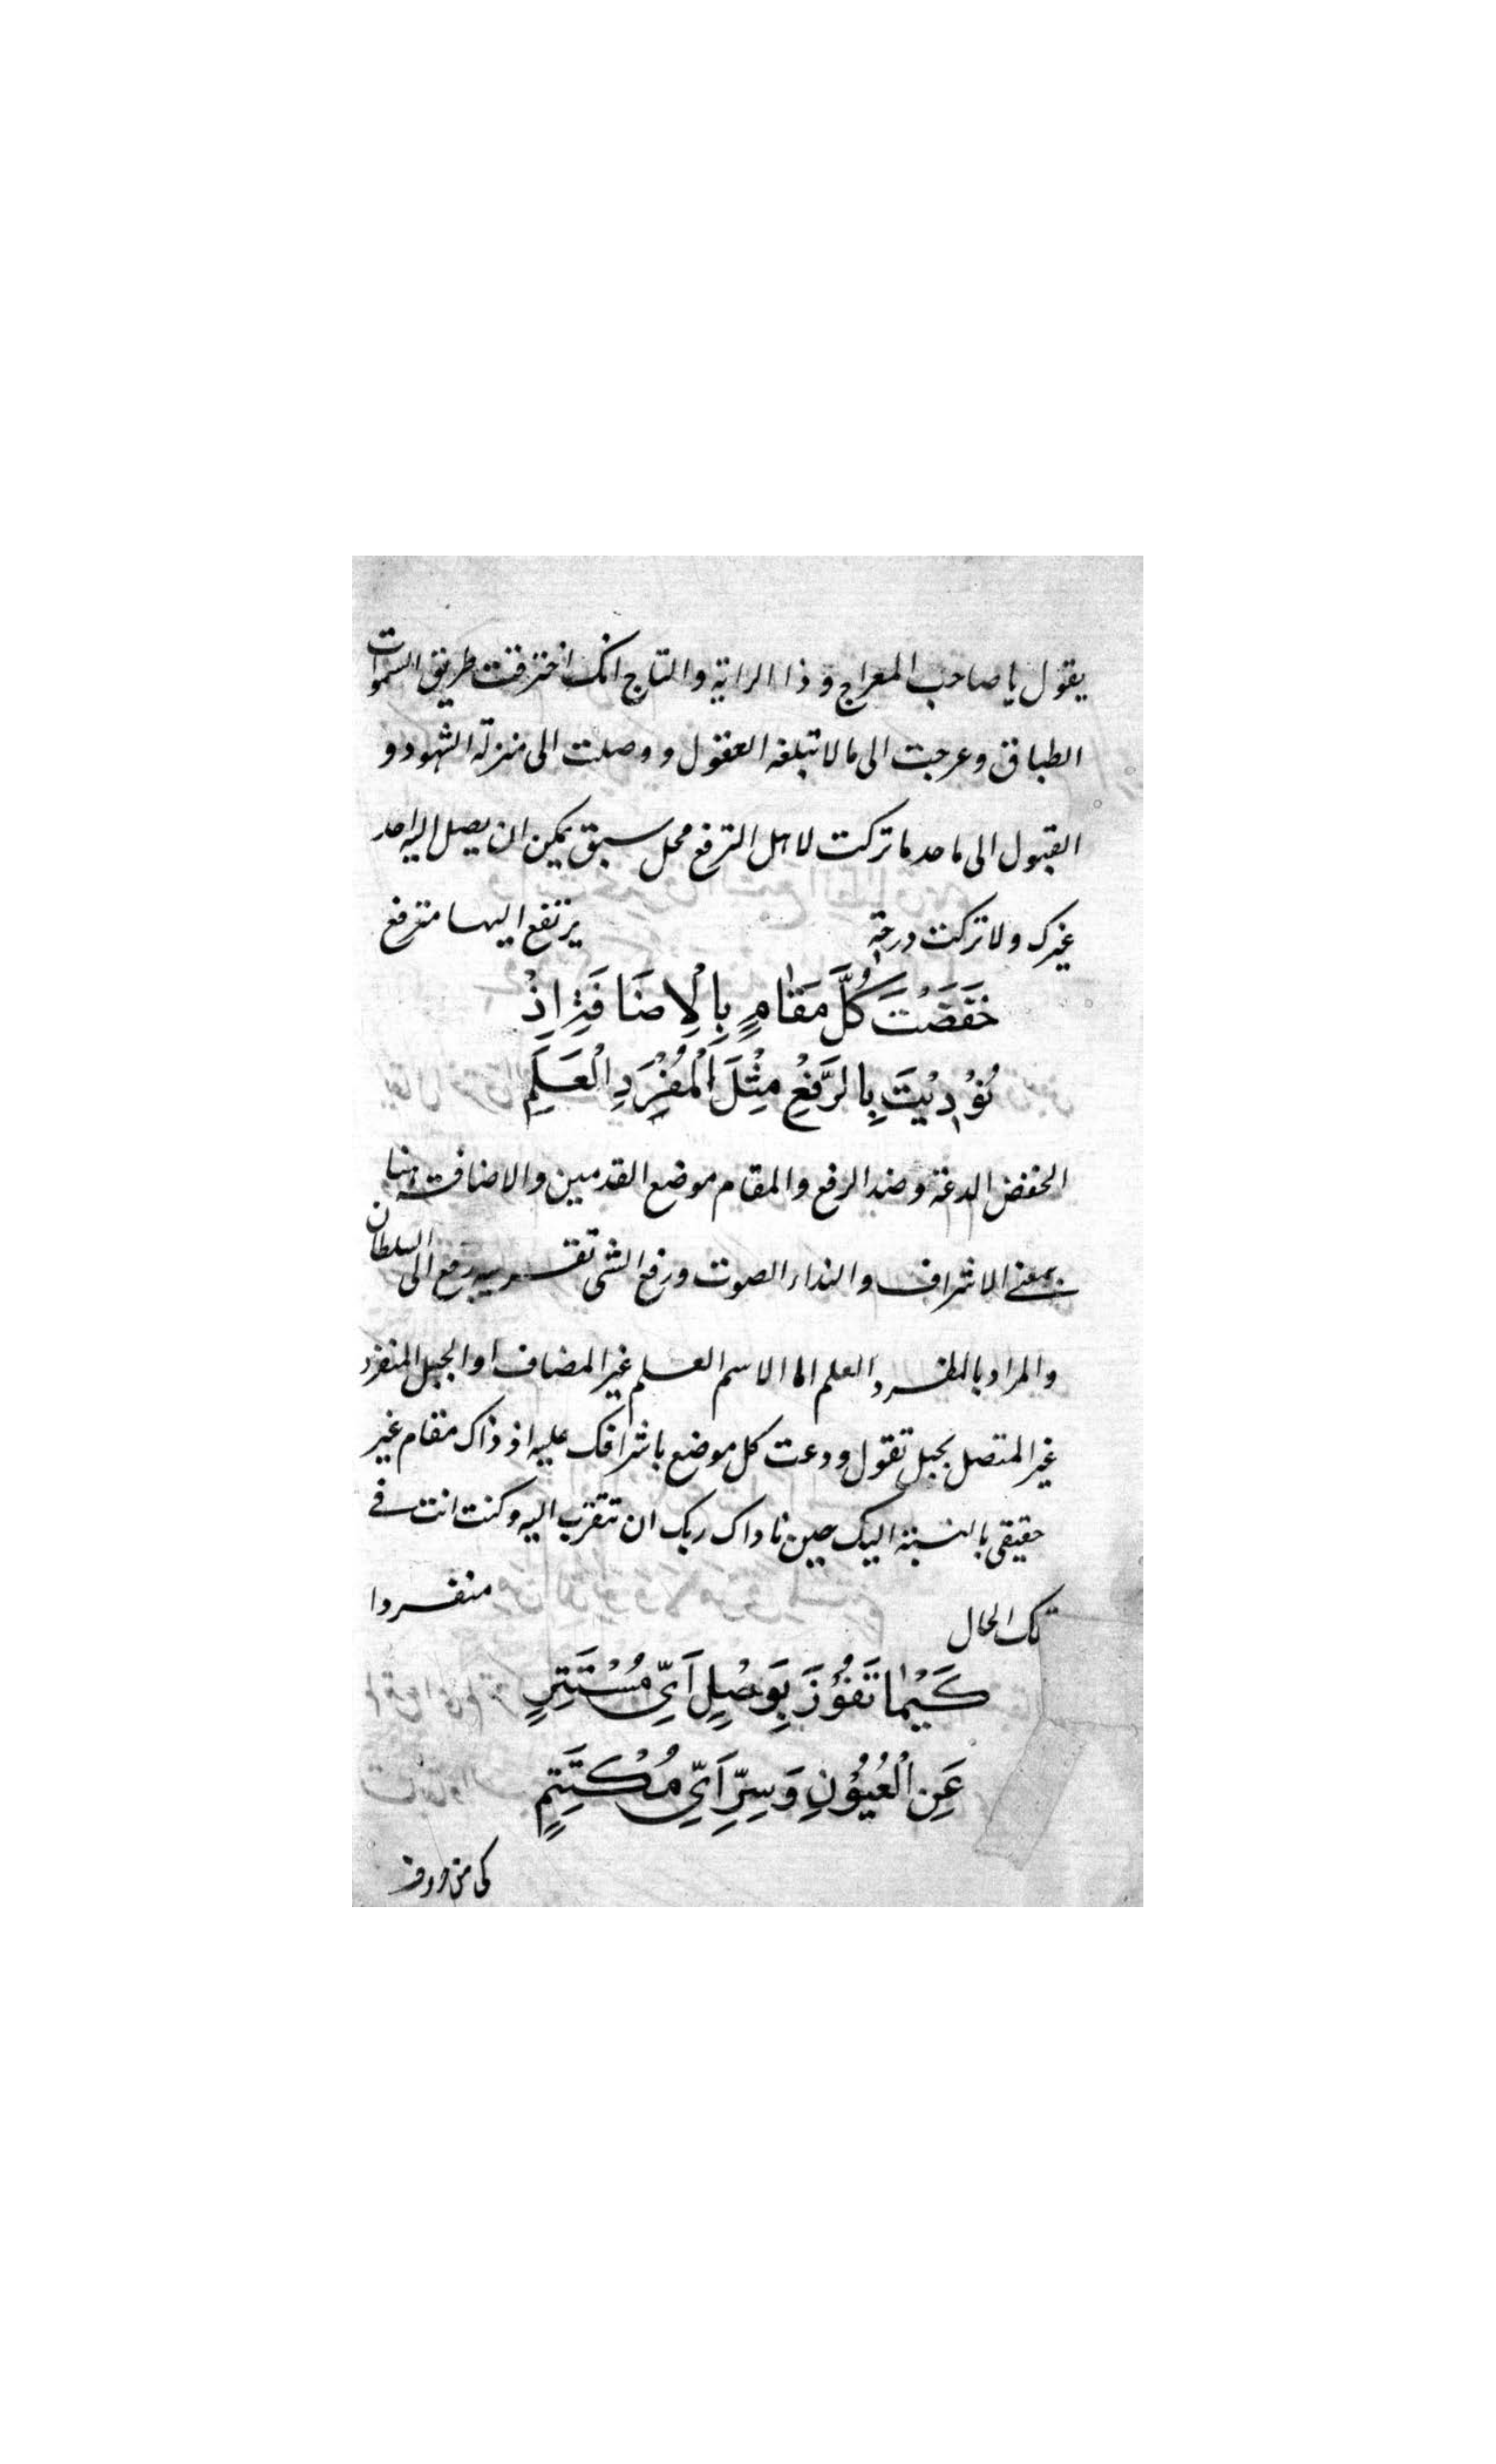 يقول يا صاحب المعراج وذا الراية والتاج انك اخترقت طريق السموات
الطباق وعرجت الى ما لا تبلغه العقول ووصلت الى منزلة الشهود و
القبول الى ما حد ما تركت لاهل الترفع محل سبق يمكن ان يصل اليه احد
غيرك ولا تركت درجة يرتفع اليها مترفع
خَفَضْتَ كُلَّ مَقَامٍ بِالْاِضَافَةِ اِذْ
نُوْدِيْتَ بِالرَّفْعِ مِثْلَ الْمُفْرَدِ الْعَلَمِ
الخفض الدعة وضد الرفع والمقام موضع القدمين والاضافة هنا
بمعنى الاشراف والنداء الصوت ورفع الشئ تقريبه رفع الى السلطان
والمراد بالمفرد العلم اما الاسم العلم غير المضاف او الجبل المنفرد
غير المتصل بجبل تقول ودعت كل موضع باشرافك عليه اذ ذاك مقام غير
حقيقى بالنسبة اليك حين ناداك ربك ان تتقرب اليه وكنت انت فى
تلك الحال منفردا
كَيْمَا تَفُوْزَ بِوَصْلٍ اَىِّ مُسْتَتِرٍ
عَنِ الْعُيُوْنِ وَسِرٍّ اَىِّ مُكْتَتِمٍ
كى من